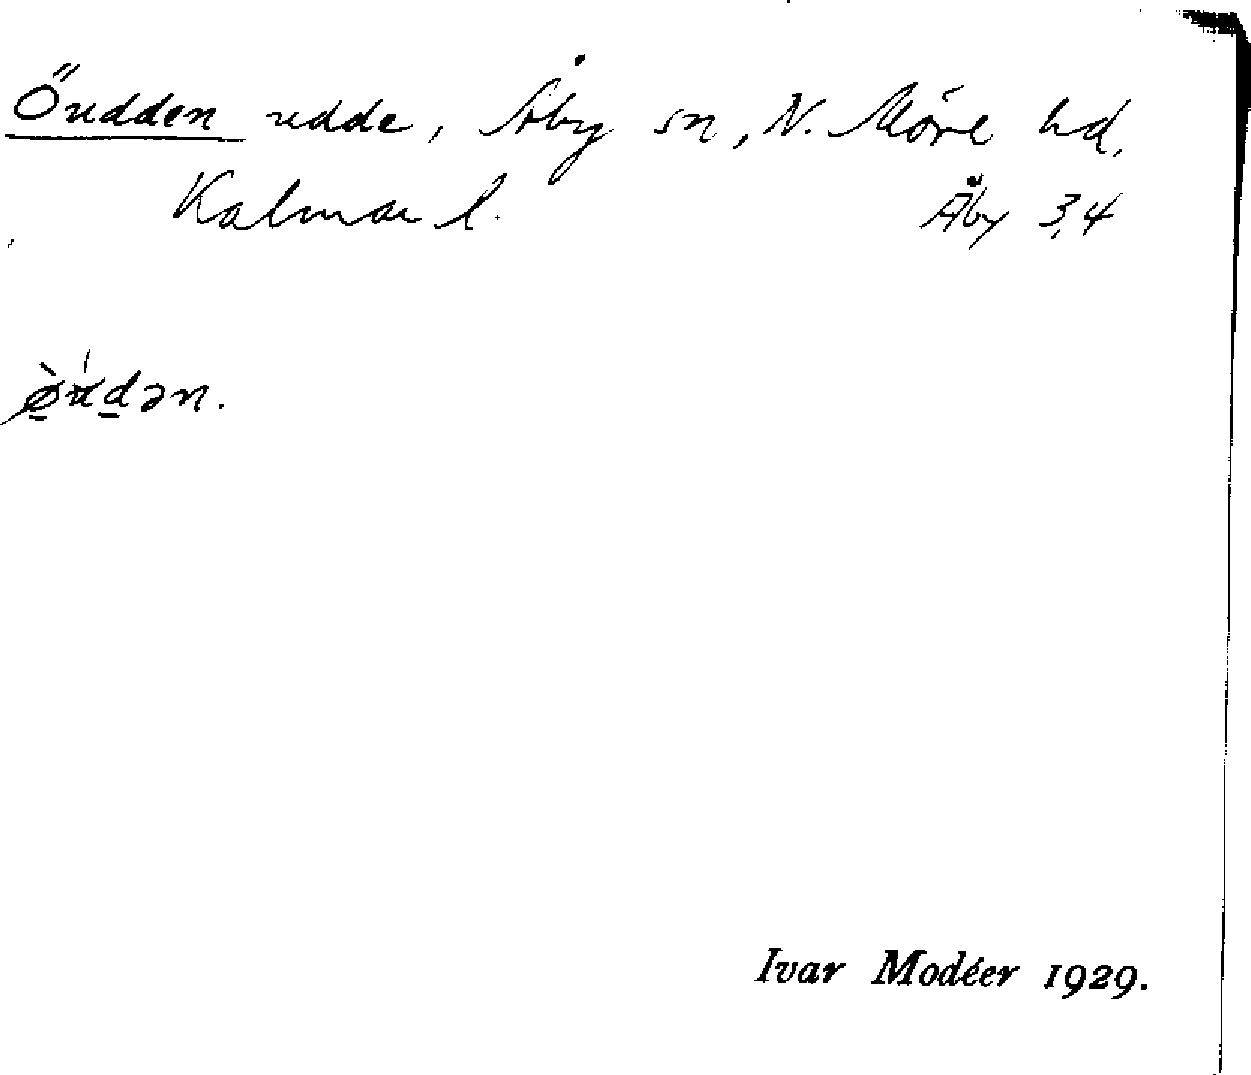 Öudden udde, Åby sn, N. Möre hd,
Kalmar l. Åby 3,4
Ivar Modéer 1929.